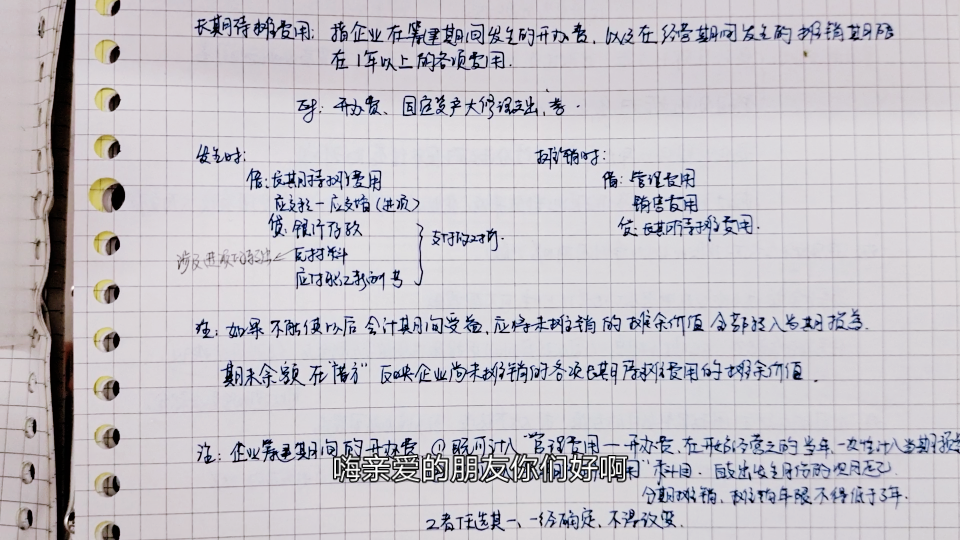 长期待摊费用：指企业在筹建期间发生的开办费，以及在经营期间发生的摊销期限
在1年以上的各项费用.
如：开办费、固定资产大修理支出,等.
发生时：
借：长期待摊费用
应交税－应交增（进项）
贷：银行存款
原材料
应付职工薪酬 等
支付的工资.
涉及进项税转出
摊销时：
借：管理费用
销售费用
贷：长期待摊费用.
注：如果不能使以后会计期间受益，应将未摊销的摊余价值全部转入当期损益.
期末余额在"借方"反映企业尚未摊销的各项长期待摊费用的摊余价值.
注：企业筹建期间的开办费 ①既可计入"管理费用－开办费，在开始经营之的当年，一次性计入当期损益
用"科目. 自支出发生月份的次月起
分期摊销，摊销年限不得低于3年.
2者任选其一、一经确定、不得改变.
嗨亲爱的朋友你们好啊